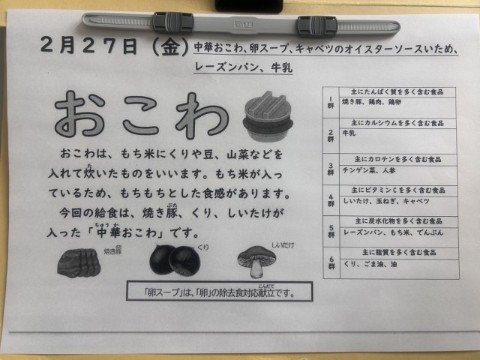 2月27日（金）中華おこわ、卵スープ、キャベツのオイスターソースいため、
レーズンパン、牛乳
おこわ
おこわは、もち米にくりや豆、山菜などを
入れて炊いたものをいいます。もち米が入っ
ているため、もちもちとした食感があります。
今回の給食は、焼き豚、くり、しいたけが
入った「中華おこわ」です。
焼き豚
くり
しいたけ
「卵スープ」は、「卵」の除去食対応献立です。
1群
主にたんぱく質を多く含む食品
焼き豚、鶏肉、鶏卵
2群
主にカルシウムを多く含む食品
牛乳
3群
主にカロテンを多く含む食品
チンゲン菜、人参
4群
主にビタミンCを多く含む食品
しいたけ、玉ねぎ、キャベツ
5群
主に炭水化物を多く含む食品
レーズンパン、もち米、でんぷん
6群
主に脂質を多く含む食品
くり、ごま油、油